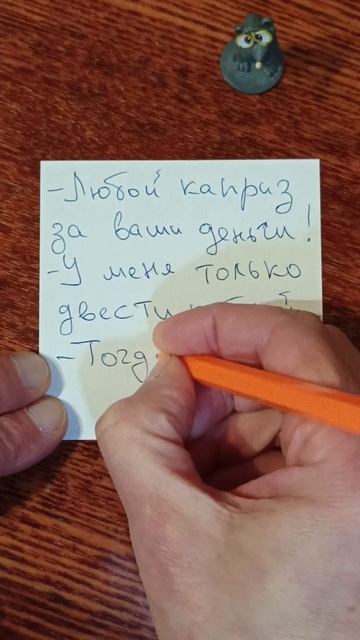 - Любой каприз
за ваши деньги!
- У меня только
двести
- Тогд